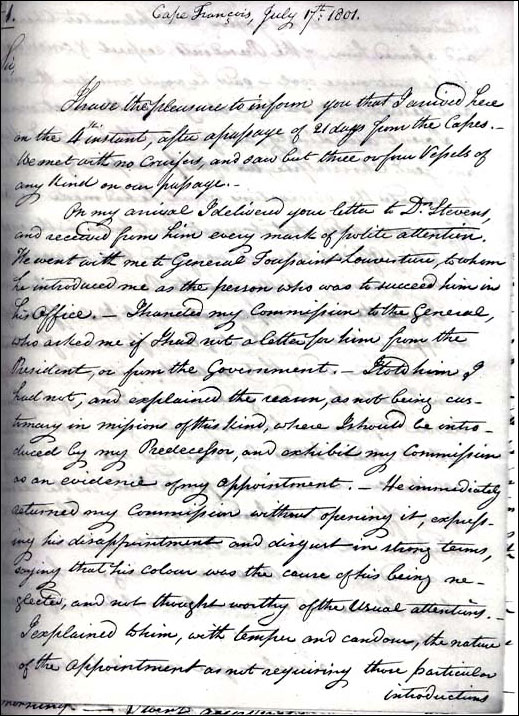 1.
Cape François, July 17th. 1801.
Sir,
I have the pleasure to inform you that I arrived here
on the 4th instant, after a passage of 21 days from the Capes.-
We met with no Cruisers, and saw but three or four Vessels of
any kind on our passage.-
On my arrival I delivered your letter to Dr. Stevens,
and received from him every mark of polite attention.
He went with me to General Toussaint Louverture, to whom
he introduced me as the person who was to succeed him in
his Office. - I handed my Commission to the General,
who asked me if I had not a letter for him from the
President, or from the Government. - I told him I
had not, and explained the reason, as not being cus-
tomary in missions of this kind, where I should be intro-
duced by my Predecessor, and exhibit my Commission
as an evidence of my appointment. - He immediately
returned my Commission without opening it, express-
ing his disappointment and disgust in strong terms,
saying that his colour was the cause of his being ne-
glected, and not thought worthy of the Usual attentions.-
I explained to him, with temper and candour, the nature
of the appointment as not requiring those particular
introductions
morning -